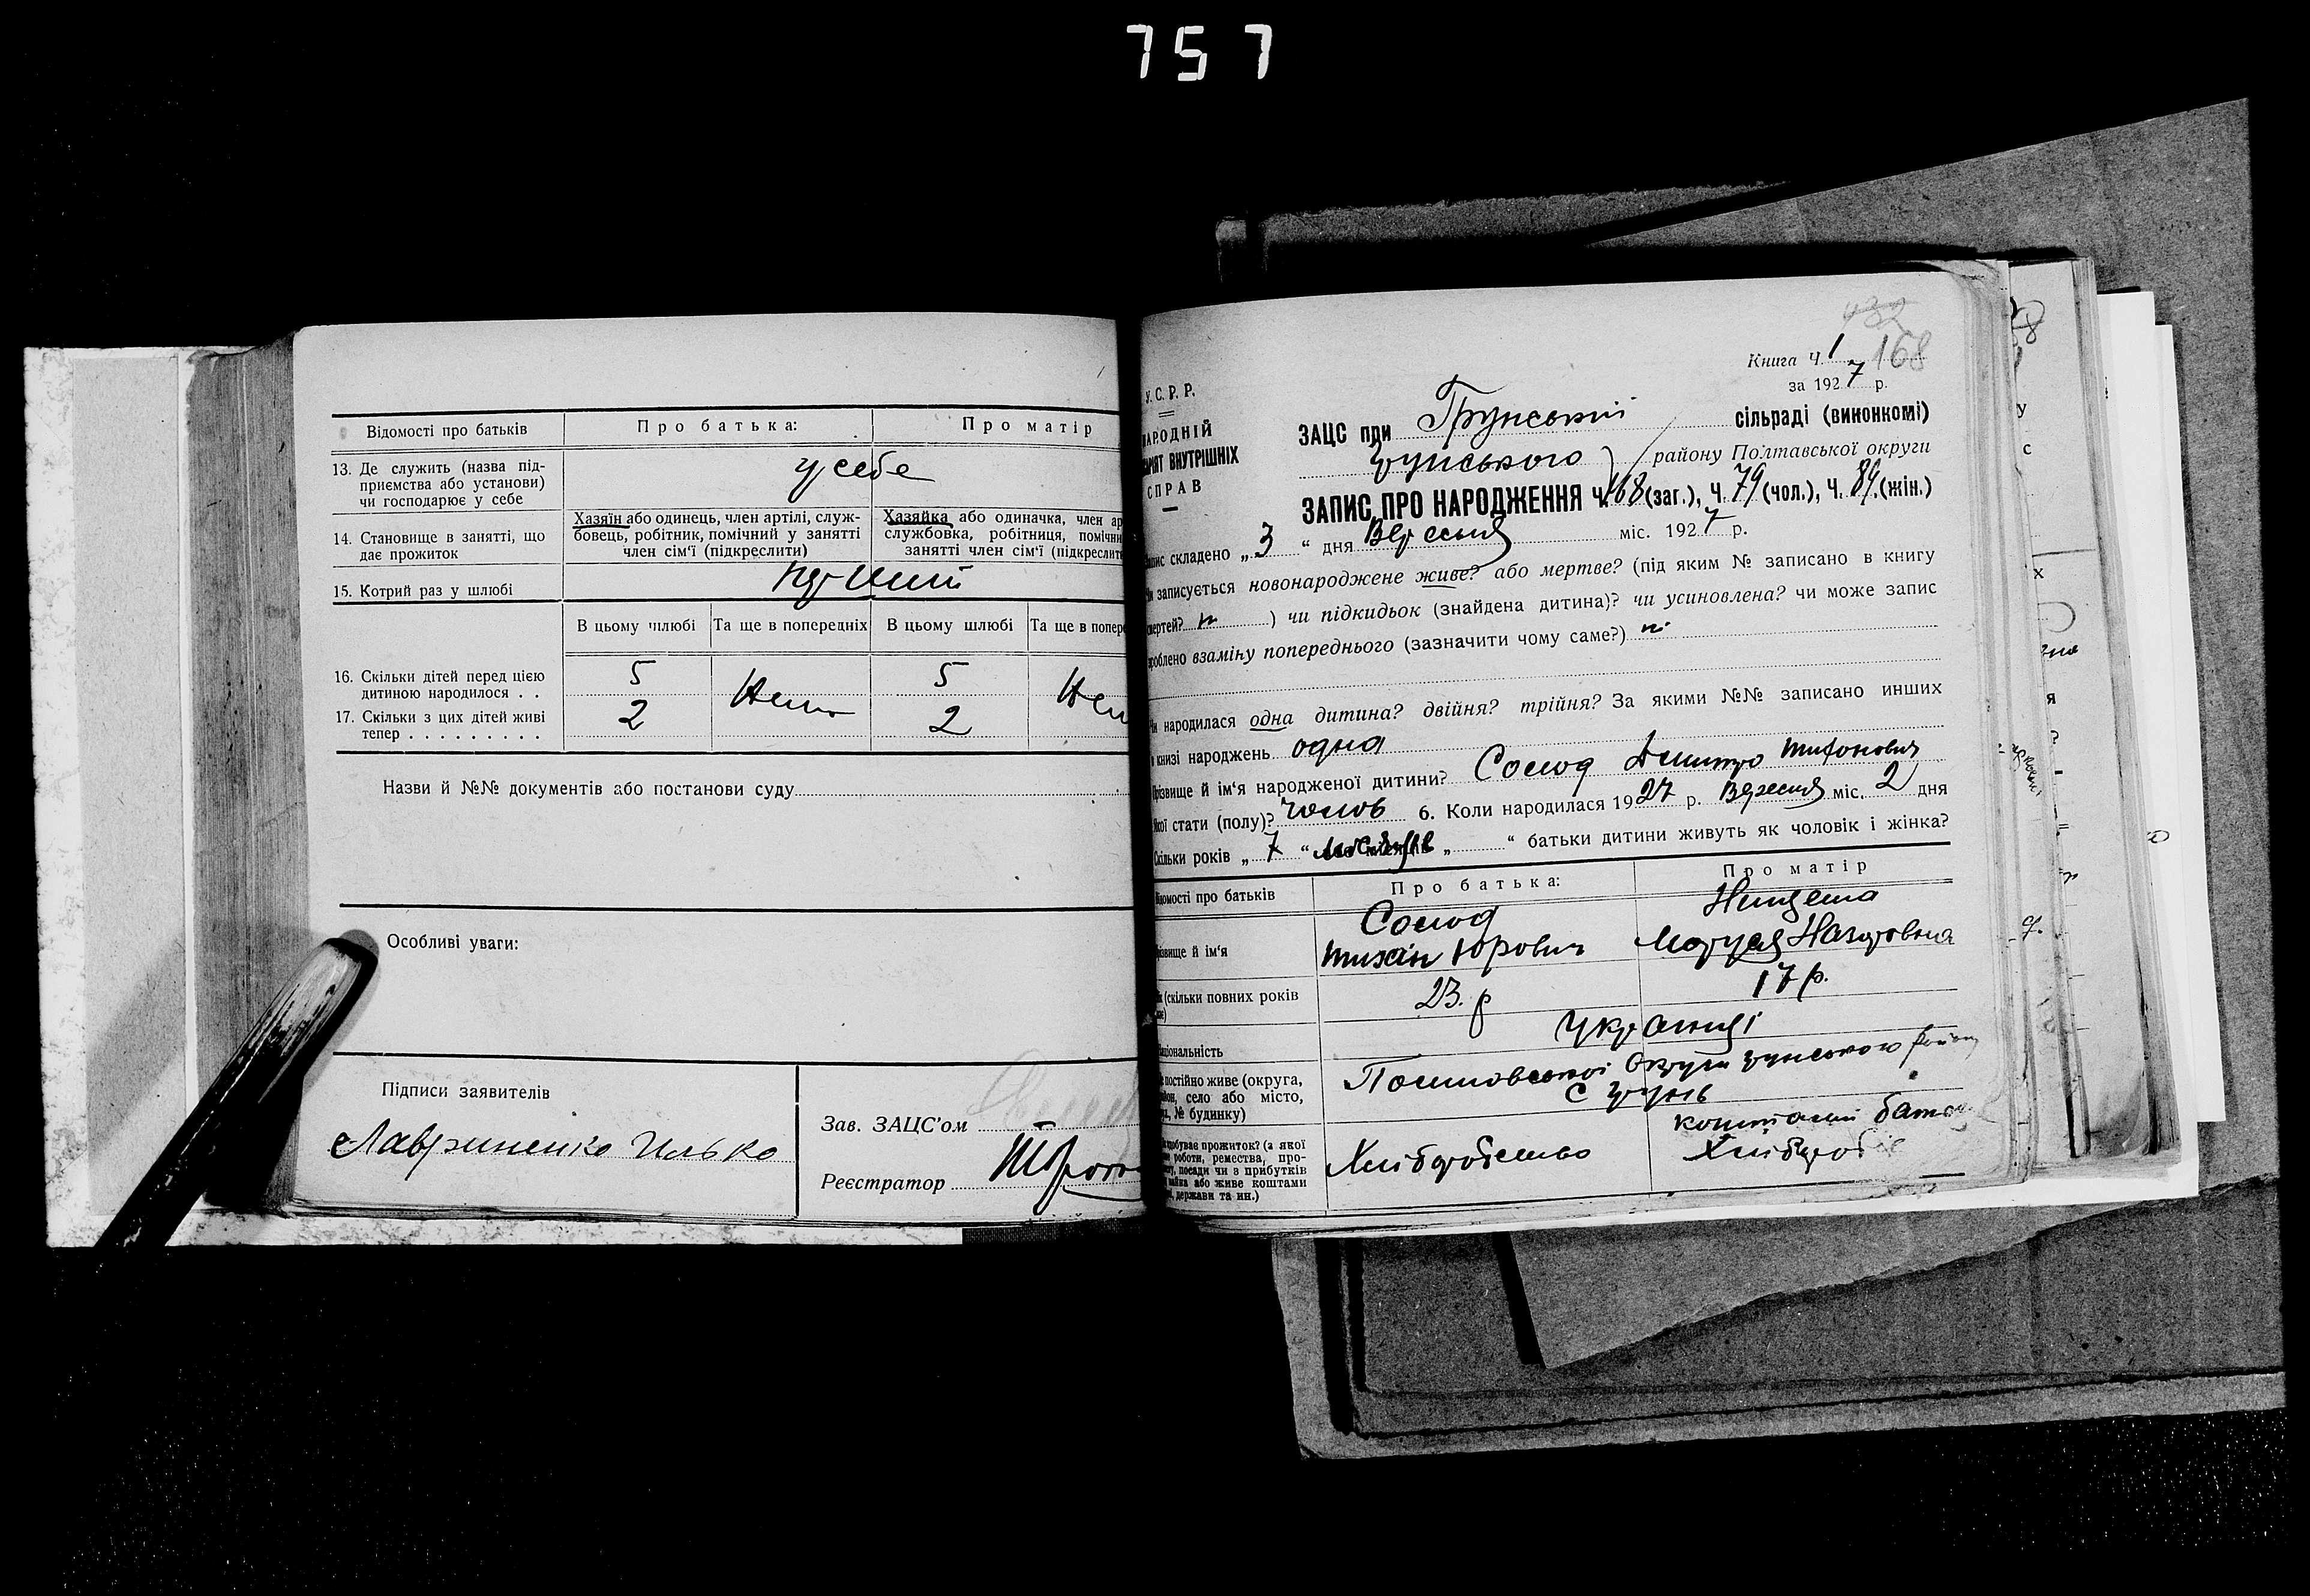 757
Відомості про батьків
Про батька:
Про матір
13. Де служить (назва під-
приємства або установи)
чи господарює у себе
у себе
14. Становище в занятті, що
дає прожиток
Хазяїн або одинець, член артілі, служ-
бовець, робітник, помічний у занятті
член сім'ї (підкреслити)
Хазяйка або одиначка, член ар
службовка, робітниця, помічни
занятті член сім'ї (підкреслити
15. Котрий раз у шлюбі
В цьому шлюбі
Та ще в попередніх
В цьому шлюбі
Та ще в попере
16. Скільки дітей перед цією
дитиною народилося . .
5
5
17. Скільки з цих дітей живі
тепер . . . . . . . . .
2
2
Назви й №№ документів або постанови суду
Особливі уваги:
Підписи заявителів
Лавриненко Илько
Зав. ЗАЦС'ом
Реєстратор
168
Книга Ч. 1
за 1927 р.
У.С.Р.Р.
АРОДНІЙ
ВНУТРІШНІХ
СПРАВ
ЗАЦС при Грунській сільраді (виконкомі)
Грунського району Полтавської округи
ЗАПИС ПРО НАРОДЖЕННЯ Ч. 168 (заг.), Ч. 79 (чол.), Ч. 89 (жін.)
складено „3“ дня Вересня міс. 1927 р.
записується новонароджене живе? або мертве? (під яким № записано в книгу
смертей? ) чи підкидьок (знайдена дитина)? чи усиновлена? чи може запис
зроблено взаміну попереднього (зазначити чому саме?) ні
народилася одна дитина? двійня? трійня? За якими №№ записано инших
книзі народжень одна
Прізвище й ім'я народженої дитини? Солод Дмитро Тихонович
стати (полу)? чолов 6. Коли народилася 1927 р. Вересня міс. 2 дня
Скільки років „7“ „ “ батьки дитини живуть як чоловік і жінка?
Відомості про батьків
Про батька:
Про матір
ізвище й ім'я
Солод
Тихін Юрович
Маруся Назаровна
(скільки повних років
23. р
17 р.
аціональність
Українці
постійно живе (округа,
село або місто,
№ будинку)
Полтавської Округи грунського району
с грунь
добуває прожиток? (з якої
роботи, ремества, про-
посади чи з прибутків
або живе коштами
держави та ин.)
Хліборобство
коштами батька